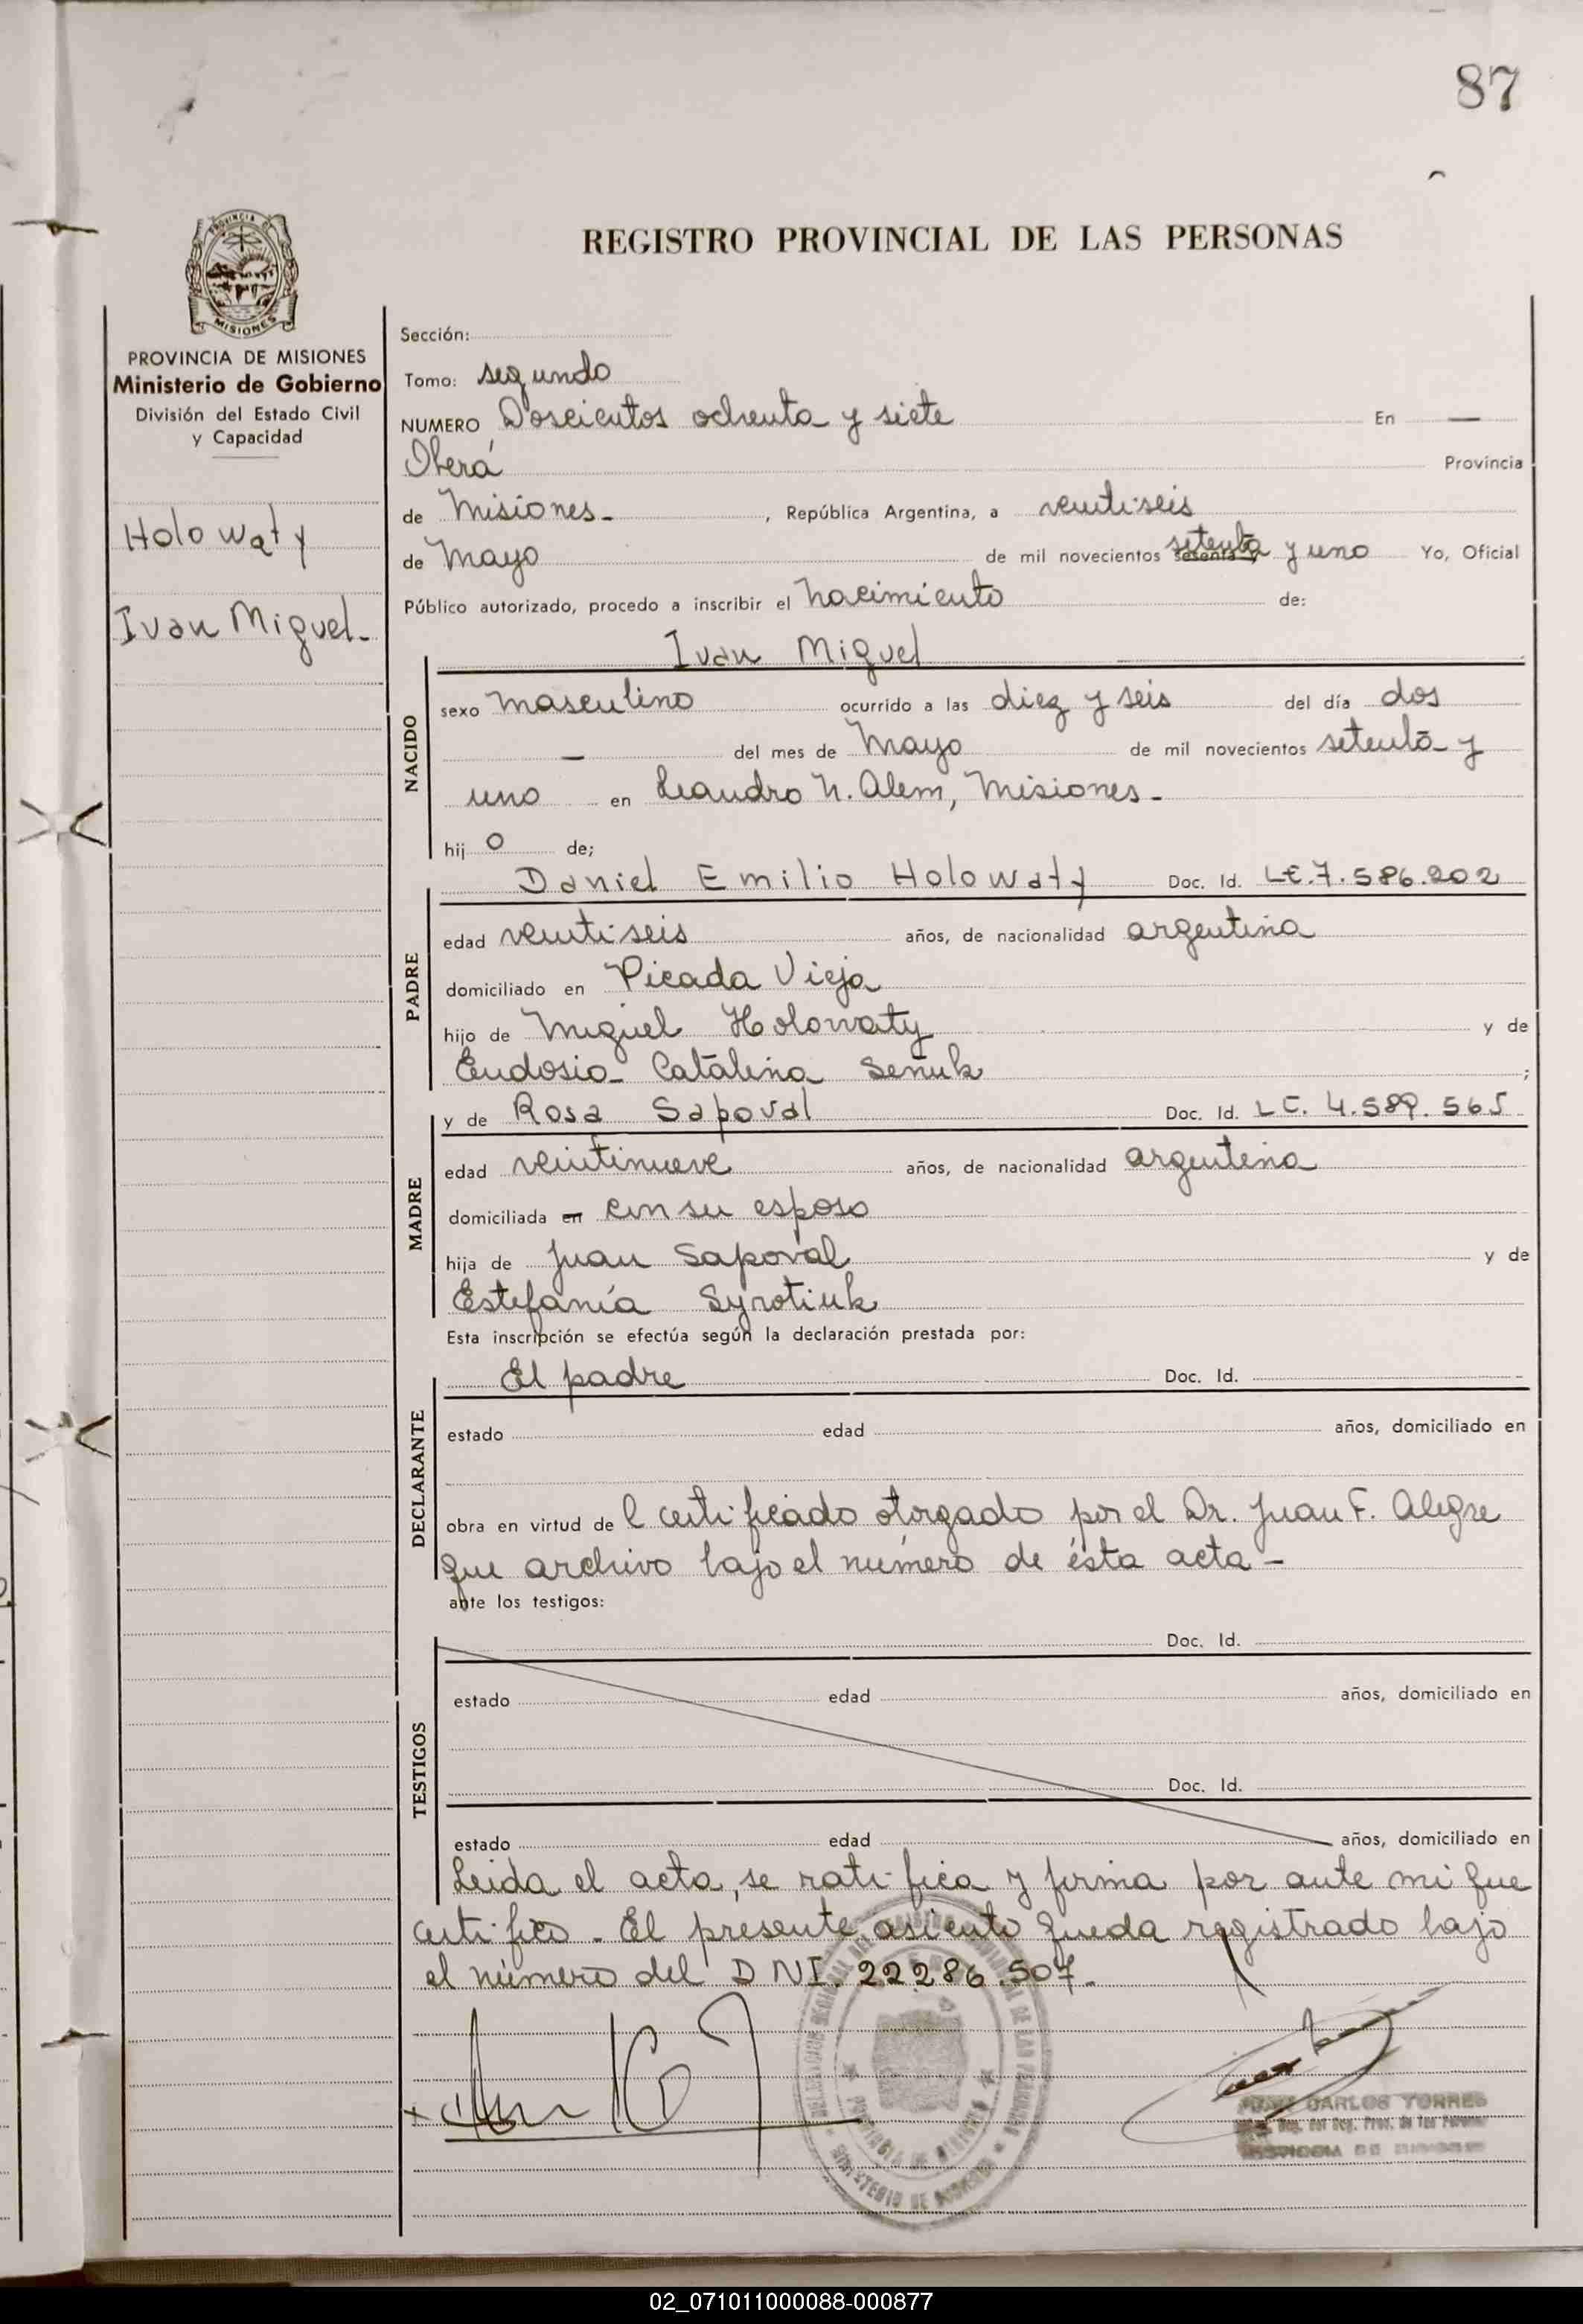 87
REGISTRO PROVINCIAL DE LAS PERSONAS
PROVINCIA
MISIONES
PROVINCIA DE MISIONES
Ministerio de Gobierno
División del Estado Civil
y Capacidad
Holowaty
Ivan Miguel.-
Sección:
Tomo: segundo
NUMERO Doscientos ochenta y siete En —
Oberá Provincia
de Misiones- , República Argentina, a veintiseis
de Mayo de mil novecientos sesenta y setenta y uno Yo, Oficial
Público autorizado, procedo a inscribir el nacimiento de:
Ivan Miguel
NACIDO
sexo masculino ocurrido a las diez y seis del día dos
— del mes de Mayo de mil novecientos setenta y
uno en Leandro N. Alem, Misiones-
hij o de;
PADRE
Daniel Emilio Holowaty Doc. Id. LE.7.586.202
edad veintiseis años, de nacionalidad argentina
domiciliado en Picada Vieja
hijo de Miguel Holowaty y de
Eudosia Catalina Señuk ;
MADRE
y de Rosa Sapoval Doc. Id. LC. 4.589.565
edad veintinueve años, de nacionalidad argentina
domiciliada en con su esposo
hija de Juan Sapoval y de
Estefanía Syrotiuk
Esta inscripción se efectúa según la declaración prestada por:
DECLARANTE
El padre Doc. Id.
estado edad años, domiciliado en
obra en virtud de l certificado otorgado por el Dr. Juan F. Alegre
que archivo bajo el número de ésta acta-
ante los testigos:
TESTIGOS
Doc. Id.
estado edad años, domiciliado en
Doc. Id.
estado edad años, domiciliado en
Leida el acta, se ratifica y firma por ante mi que
certifico. El presente asiento queda registrado bajo
el número del DNI. 22.286.507.-
PROVINCIA DE MISIONES
CARLOS TORRES
02_071011000088-000877